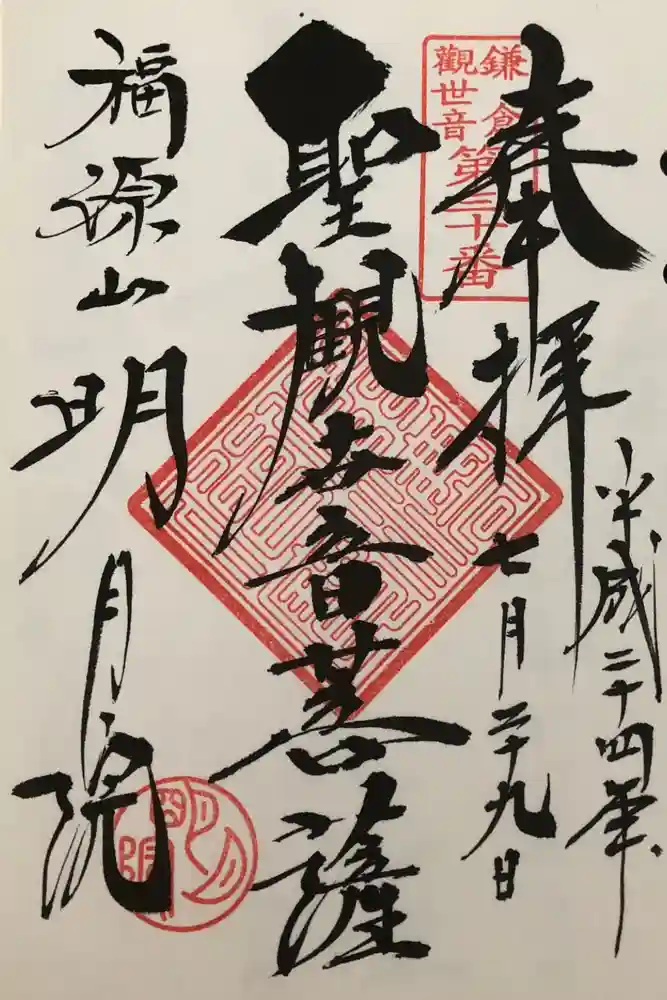 奉拝
平成二十四年
七月二十九日
鎌倉
観世音
第三十番
聖観世音菩薩
福源山
明月院